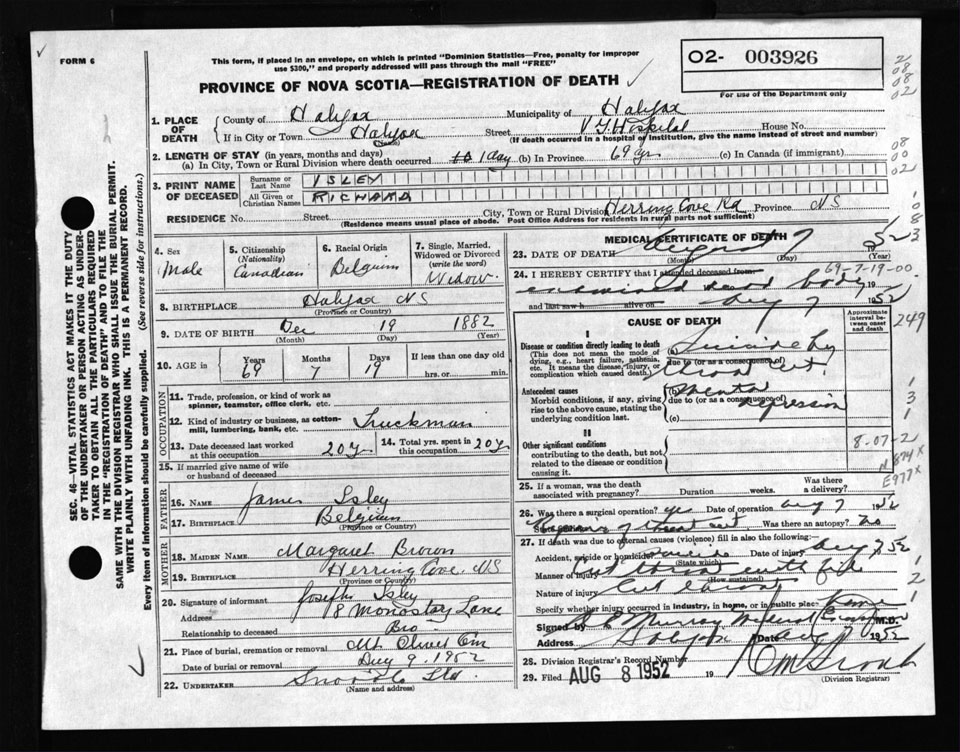 FORM 6
This form, if placed in an envelope, on which is printed "Dominion Statistics—Free, penalty for improper
use $300," and properly addressed will pass through the mail "FREE"
PROVINCE OF NOVA SCOTIA—REGISTRATION OF DEATH
02- 003926
For use of the Department only
SEC. 46—VITAL STATISTICS ACT MAKES IT THE DUTY
OF THE UNDERTAKER OR PERSON ACTING AS UNDER-
TAKER TO OBTAIN ALL THE PARTICULARS REQUIRED
IN THE "REGISTRATION OF DEATH" AND TO FILE THE
SAME WITH THE DIVISION REGISTRAR WHO SHALL ISSUE THE BURIAL PERMIT.
WRITE PLAINLY WITH UNFADING INK. THIS IS A PERMANENT RECORD.
Every item of information should be carefully supplied. (See reverse side for instructions.)
1. PLACE OF DEATH
County of Halifax Municipality of Halifax
If in City or Town Halifax (Name) Street V G Hospital House No.
(If death occurred in a hospital or institution, give the name instead of street and number)
2. LENGTH OF STAY (in years, months and days)
(a) In City, Town or Rural Division where death occurred 1 day (b) In Province 69 yrs (c) In Canada (if immigrant)
3. PRINT NAME OF DECEASED
Surname or Last Name ISLEY
All Given or Christian Names RICHARD
RESIDENCE No. Street City, Town or Rural Division Herring Cove Rd Province N S
(Residence means usual place of abode. Post Office Address for residents in rural parts not sufficient)
4. Sex Male
5. Citizenship (Nationality) Canadian
6. Racial Origin Belgium
7. Single, Married, Widowed or Divorced (write the word) Widow
8. BIRTHPLACE Halifax NS
(Province or Country)
9. DATE OF BIRTH Dec 19 1882
(Month) (Day) (Year)
10. AGE Years 69 Months 7 Days 19 If less than one day old hrs. or min.
OCCUPATION
11. Trade, profession, or kind of work as spinner, teamster, office clerk, etc.
12. Kind of industry or business, as cotton-mill, lumbering, bank, etc. Truckman
13. Date deceased last worked at this occupation 20 y
14. Total yrs. spent in this occupation 20 y
15. If married give name of wife or husband of deceased
FATHER
16. NAME James Isley
17. BIRTHPLACE Belgium
(Province or Country)
MOTHER
18. MAIDEN NAME Margaret Brown
19. BIRTHPLACE Herring Cove. NS
(Province or Country)
20. Signature of informant Joseph Isley
Address 8 Monastary Lane
Relationship to deceased Bro
21. Place of burial, cremation or removal Mt Olivet Cem
Date of burial or removal Aug 9. 1952
22. UNDERTAKER Snow & Co Ltd
(Name and address)
MEDICAL CERTIFICATE OF DEATH
23. DATE OF DEATH August 7 1952
(Month) (Day) (Year)
69-7-19-00
24. I HEREBY CERTIFY that I attended deceased from
examined dead body
and last saw h alive on Aug 7 1952
CAUSE OF DEATH
Approximate interval between onset and death
249
I
Disease or condition directly leading to death
(This does not mean the mode of dying, e.g., heart failure, asthenia, etc. It means the disease, injury, or complication which caused death.)
(a) Suicide by
due to (or as a consequence of)
throat cut.
Antecedent causes
Morbid conditions, if any, giving rise to the above cause, stating the underlying condition last.
(b) mental
due to (or as a consequence of)
depression
(c)
II
Other significant conditions
contributing to the death, but not related to the disease or condition causing it.
8-07-2
N874X
E977X
25. If a woman, was the death associated with pregnancy? Duration weeks. Was there a delivery?
26. Was there a surgical operation? yes Date of operation Aug 7 1952
of throat cut Was there an autopsy? No
27. If death was due to external causes (violence) fill in also the following:
Accident, suicide or homicide? suicide Date of injury Aug 7 52
(State which)
Manner of injury Cut throat with
(How sustained)
Nature of injury Cut throat
Specify whether injury occurred in industry, in home, or in public place: Home
Signed by Murray M.D.
Address Halifax Date Aug 1952
28. Division Registrar's Record Number
29. Filed AUG 8 1952 19
(Division Registrar)